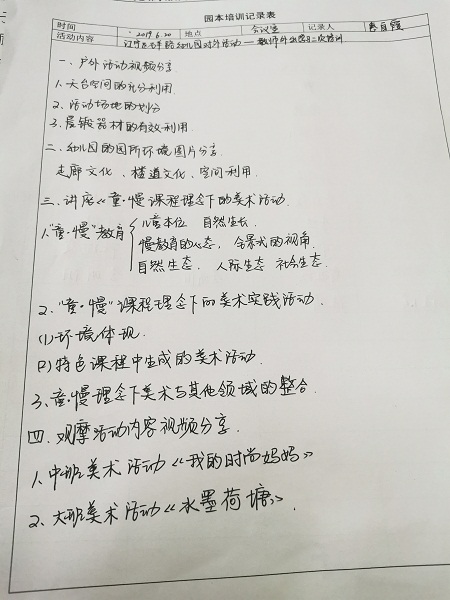 园本培训记录表
时间 2019.6.20 地点 会议室 记录人
活动内容 幼儿园对外活动——教师外出学习二次培训
一、户外活动视频分享
1.天台空间的充分利用
2.活动场地的划分
3.晨锻器材的有效利用
二、幼儿园的园所环境图片分享
走廊文化、楼道文化、空间利用.
三.讲座《童·慢课程理念下的美术活动
1."童·慢"教育 儿童本位 自然生长
慢教育的心态, 全景式的视角
自然生态、人际生态 社会生态
2."童·慢"课程理念下的美术实践活动
(1)环境体现.
(2)特色课程中生成的美术活动
3、童·慢理念下美术与其他领域的整合
四.观摩活动内容视频分享
1、中班美术活动《我的时尚妈妈》
2、大班美术活动《水墨荷塘》.